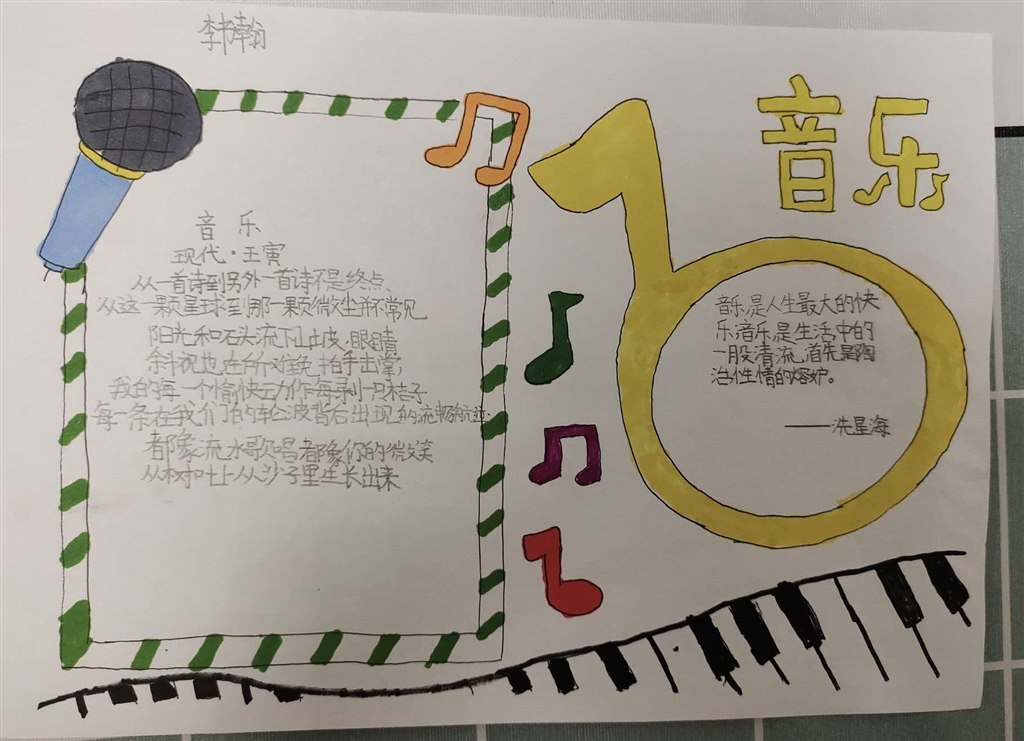 李翰
音乐
音乐
现代·王寅
从一首诗到另外一首诗不是终点、
从这一颗星球到那一颗微尘并不常见
阳光和石头流下山坡、眼睛
斜视也在所难免、拍手出掌,
我的每一个愉快动作每剥一只桔子
每一条在我们的轮波背后出现的流畅航迹
都像流水歌唱都像你的微笑
从树和让从沙子里生长出来
音乐,是人生最大的快
乐,音乐,是生活中的
一股清流,首先是陶
冶性情的熔炉。
——冼星海